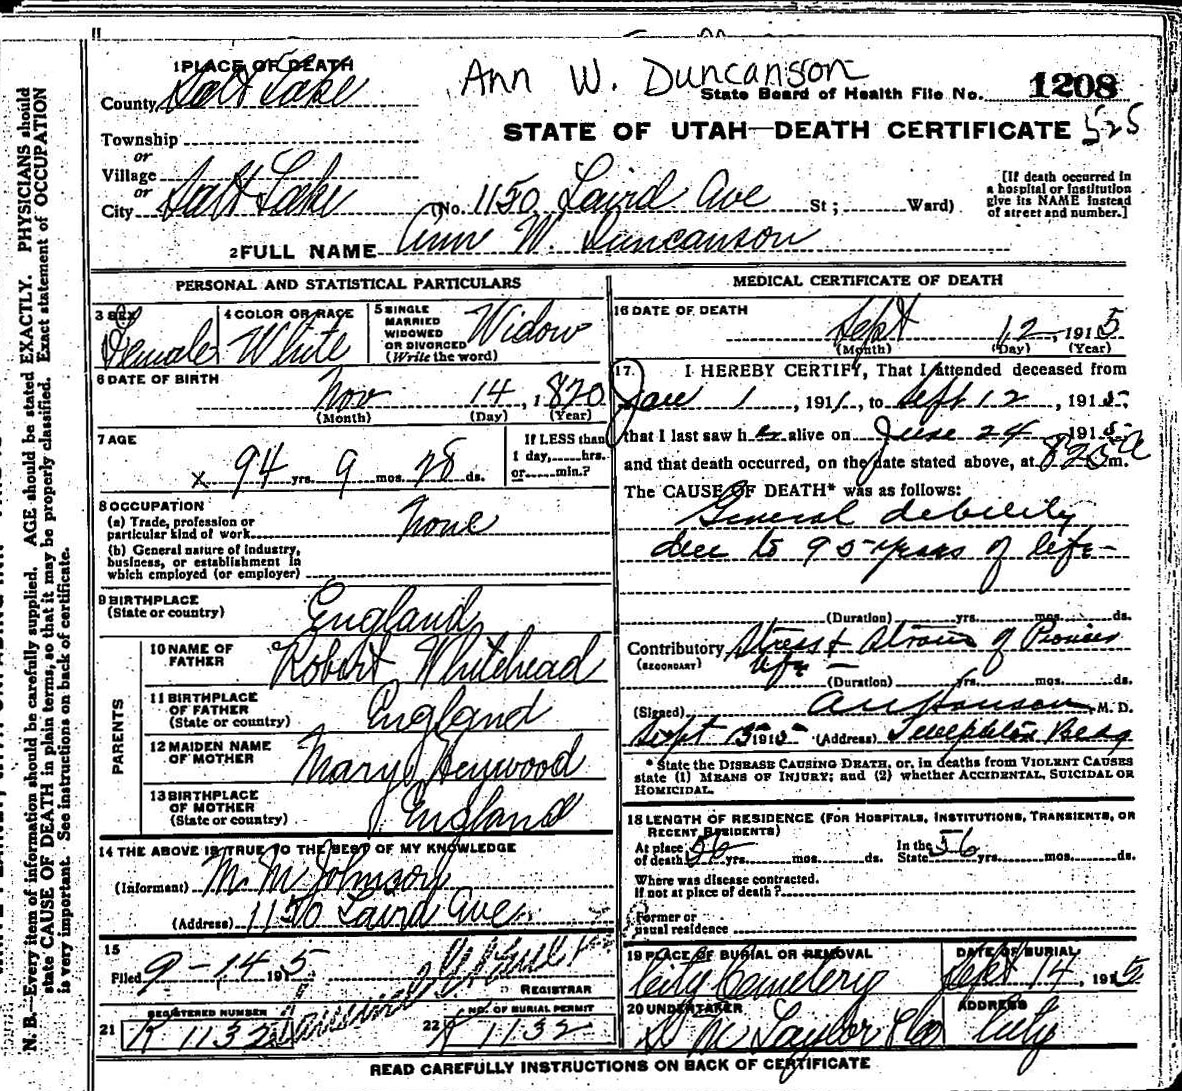 1 PLACE OF DEATH
Ann W. Duncanson
County Salt Lake
State Board of Health File No. 1208
Township
STATE OF UTAH—DEATH CERTIFICATE 525
or
Village
or
City Salt Lake (No. 1150 Laird Ave St; Ward)
[If death occurred in
a hospital or institution
give its NAME instead
of street and number.]
2 FULL NAME Ann W. Duncanson
PERSONAL AND STATISTICAL PARTICULARS
3 SEX Female
4 COLOR OR RACE White
5 SINGLE
MARRIED
WIDOWED
OR DIVORCED
(Write the word) Widow
6 DATE OF BIRTH
Nov 14, 1820
(Month) (Day) (Year)
7 AGE
x 94 yrs. 9 mos. 28 ds.
If LESS than
1 day, hrs.
or min.?
8 OCCUPATION
(a) Trade, profession or
particular kind of work None
(b) General nature of industry,
business, or establishment in
which employed (or employer)
9 BIRTHPLACE
(State or country) England
PARENTS
10 NAME OF
FATHER Robert Whitehead
11 BIRTHPLACE
OF FATHER
(State or country) England
12 MAIDEN NAME
OF MOTHER Mary Heywood
13 BIRTHPLACE
OF MOTHER
(State or country) England
14 THE ABOVE IS TRUE TO THE BEST OF MY KNOWLEDGE
(Informant) M. M. Johnson
(Address) 1150 Laird Ave
15
Filed 9-14 1915
REGISTRAR
21 REGISTERED NUMBER
K 1132
22 NO. OF BURIAL PERMIT
K 1132
MEDICAL CERTIFICATE OF DEATH
16 DATE OF DEATH
Sept 12, 1915
(Month) (Day) (Year)
17. I HEREBY CERTIFY, That I attended deceased from
Jan 1, 1911, to Sept 12, 1915,
that I last saw her alive on June 24 1915
and that death occurred, on the date stated above, at 825 a m.
The CAUSE OF DEATH* was as follows:
General debility
due to 95 years of life-
(Duration) yrs. mos. ds.
Contributory Stress & Strain of Pioneer
(SECONDARY) life —
(Duration) yrs. mos. ds.
(Signed) M. D.
Sept 13 1915 (Address) Telephone Bldg
* State the DISEASE CAUSING DEATH, or, in deaths from VIOLENT CAUSES
state (1) MEANS OF INJURY; and (2) whether ACCIDENTAL, SUICIDAL OR
HOMICIDAL.
18 LENGTH OF RESIDENCE (FOR HOSPITALS, INSTITUTIONS, TRANSIENTS, OR
RECENT RESIDENTS)
At place
of death yrs. mos. ds.
In the
State 56 yrs. mos. ds.
Where was disease contracted.
if not at place of death?
Former or
usual residence
19 PLACE OF BURIAL OR REMOVAL
City Cemetery
DATE OF BURIAL
Sept 14, 1915
20 UNDERTAKER
S. M. Taylor & Co
ADDRESS
City
READ CAREFULLY INSTRUCTIONS ON BACK OF CERTIFICATE
N. B.—Every item of information should be carefully supplied. AGE should be stated EXACTLY. PHYSICIANS should
state CAUSE OF DEATH in plain terms, so that it may be properly classified. Exact statement of OCCUPATION
is very important. See instructions on back of certificate.